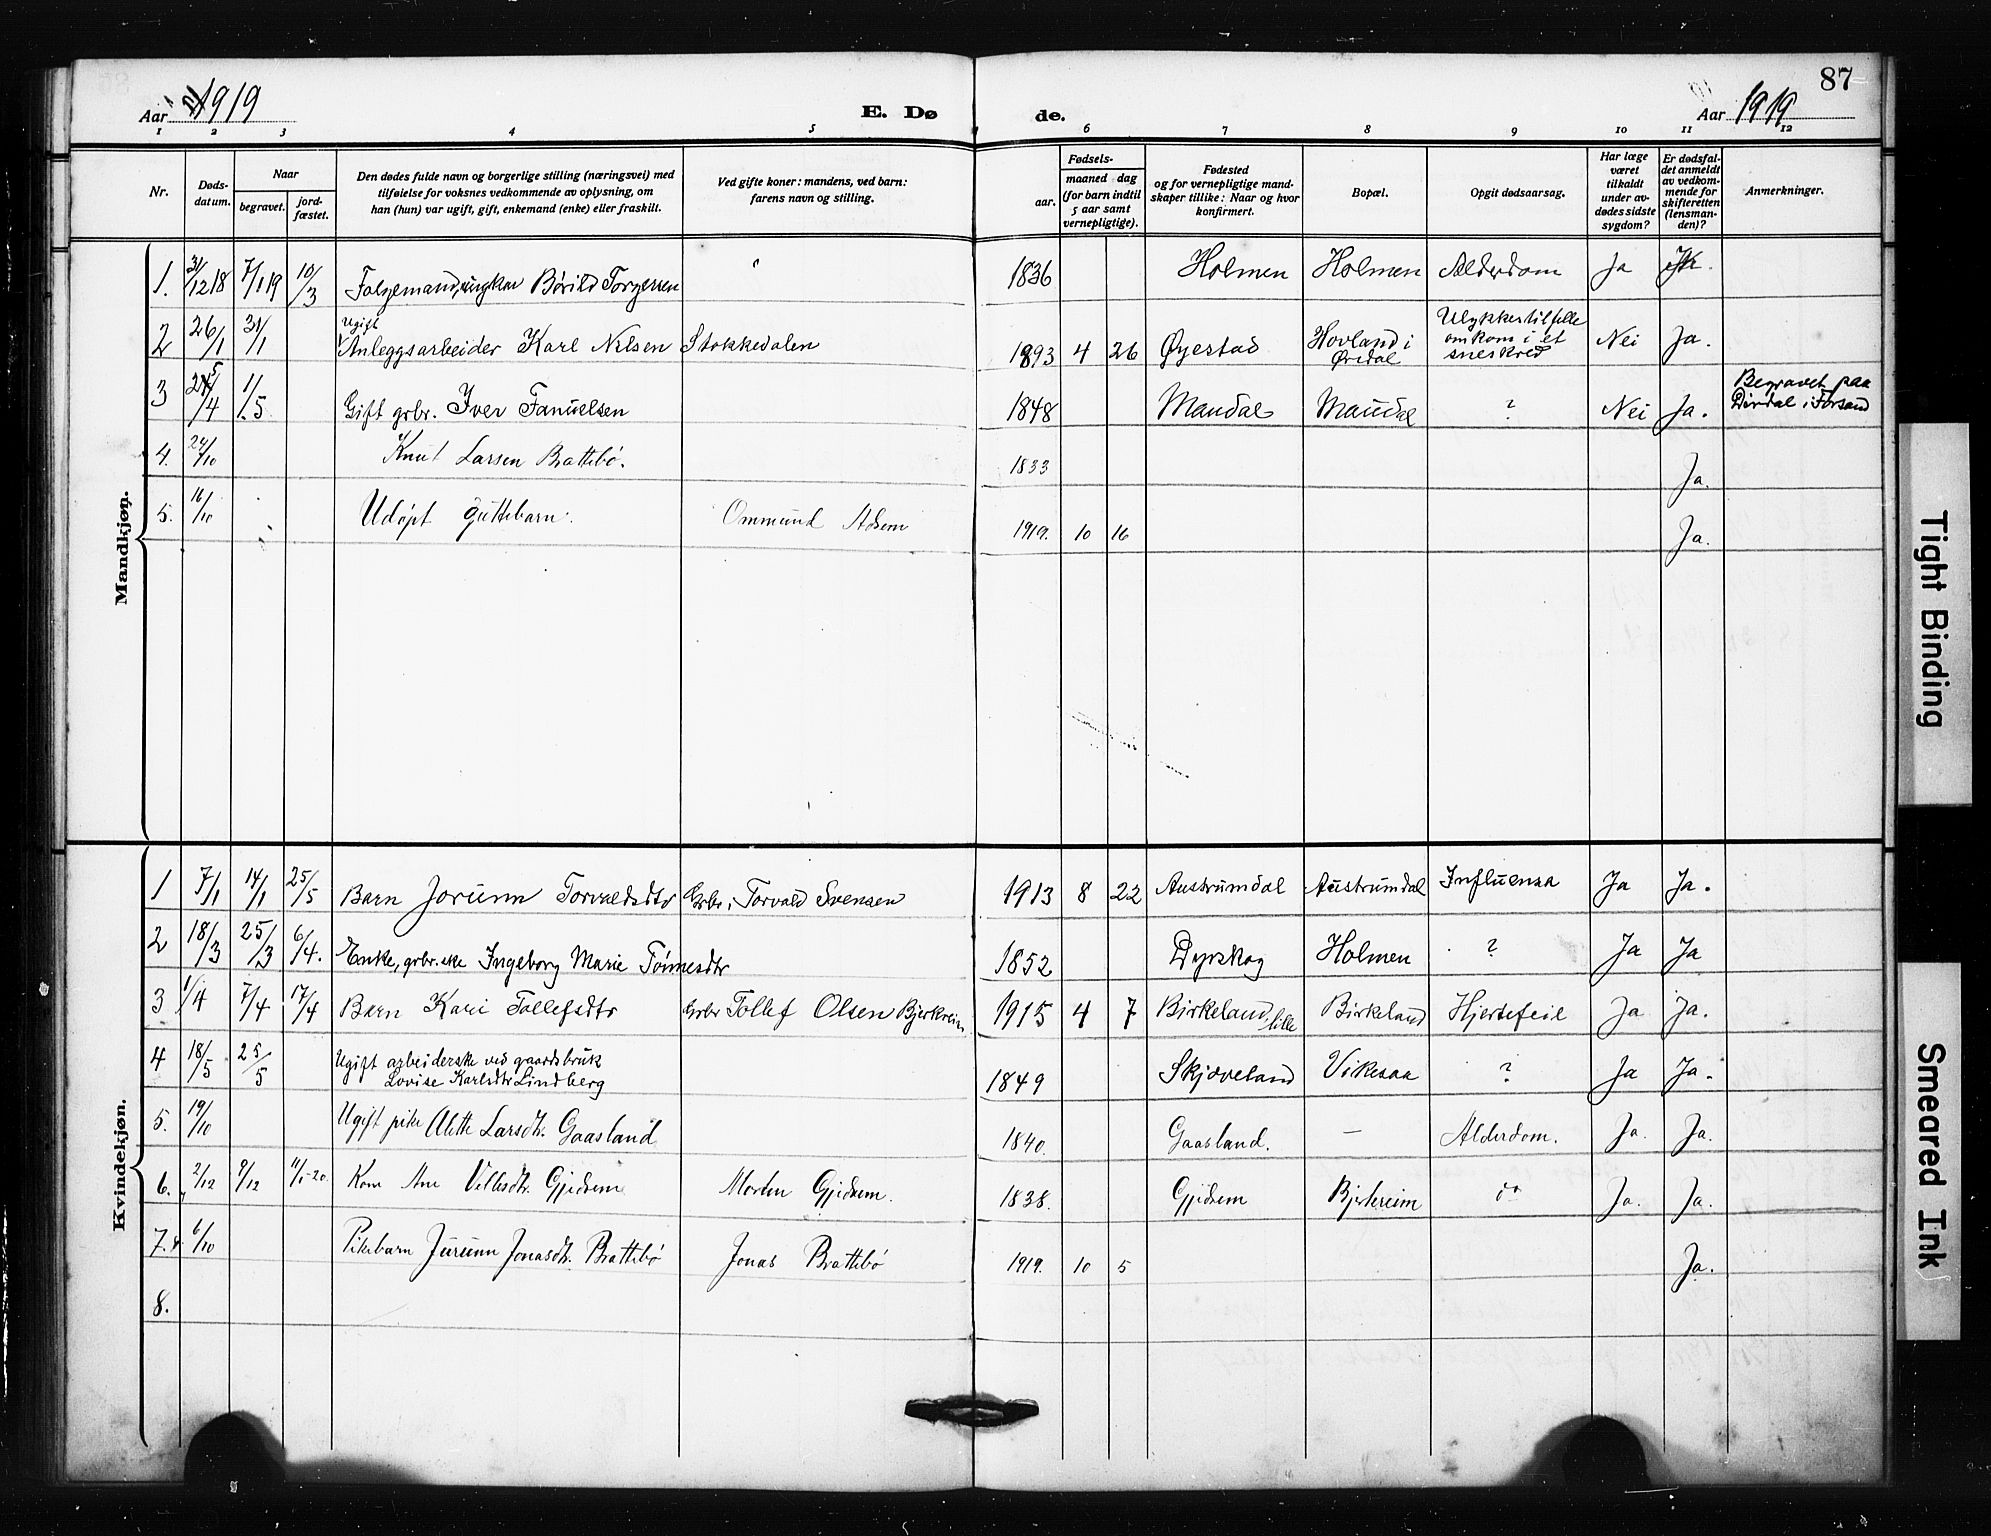 87
Aar 1919
E. Dø
de.
Aar 1919
1 2 3 4 5 6 7 8 9 10 11 12
Nr.
Døds-
datum.
Naar
begravet.
jord-
fæstet.
Den dødes fulde navn og borgerlige stilling (næringsvei) med
tilføielse for voksnes vedkommende av oplysning, om
han (hun) var ugift, gift, enkemand (enke) eller fraskilt.
Ved gifte koner: mandens, ved barn:
farens navn og stilling.
Fødsels-
aar.
maaned dag
(for barn indtil
5 aar samt
vernepligtige).
Fødested
og for vernepligtige mand-
skaper tillike: Naar og hvor
konfirmert.
Bopæl.
Opgit dødsaarsag.
Har læge
været
tilkaldt
under av-
dødes sidste
sygdom?
Er dødsfal-
det anmeldt
av vedkom-
mende for
skifteretten
(lensman-
den)?
Anmerkninger.
Mandkjøn.
1. 31/12 18 7/1 19 10/3 Folgemand, ungkar Børild Torgersen 1836 Holmen Holmen Alderdom Ja
2 26/1 31/1 Ugift Anleggsarbeider Karl Nilsen Stokkedalen 1893 4 26 Øyestad Hovland i Ørsdal Ulykkestilfelle omkom i et sneskred Nei Ja.
3 /4 1/5 Gift grbr. Iver Fanuelsen 1848 Maudal Maudal ? Nei Ja. Begravet paa Dirdal i Forsand
4. 24/10 Knut Larsen Brattebø. 1833 Ja.
5. 16/10 Udøpt guttebarn. Ommund 1919. 10 16 Ja.
Kvindekjøn.
1 7/1 14/1 25/5 Barn Jorunn Torvaldsdtr Grbr. Torvald Svensen 1913 8 22 Austrumdal Austrumdal Influensa Ja Ja.
2 18/3 25/3 6/4. Enke, grbr.eke Ingeborg Marie Tönnesdtr 1852 Dyrskog Holmen ? Ja Ja
3 1/4 7/4 17/4 Barn Kari Tollefsdtr Grbr Tollef Olsen Bjerkreim 1915 4 7 Birkeland lille Birkeland Hjertefeil Ja Ja.
4 18/5 25/5 Ugift arbeiderske ved gaardsbruk
Lovise Karlsdtr Lindberg 1849 Skjæveland Vikesaa ? Ja Ja.
5. 19/10 Ugift pike Alette Larsdtr. Gaasland 1840. Gaasland. — Alderdom. Ja. Ja.
6. 2/12 9/12 11/1-20 Kone Ane Gjedrem Morten Gjedrem. 1838. Gjedrem Bjerkreim do Ja. Ja.
7. 6/10 Pikebarn Jorunn Jonasdtr. Brattebø Jonas Brattebø 1919. 10 5 Ja.
8.
Tight Binding
Smeared Ink